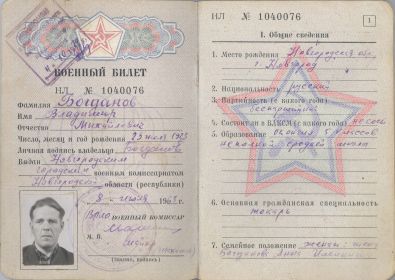 ВОЕННЫЙ БИЛЕТ
НЛ № 1040076
Фамилия Богданов
Имя Владимир
Отчество Михайлович
Число, месяц и год рождения 23 мая 1923
Личная подпись владельца Богданов
Выдан Новгородским
городским военным комиссариатом
Новгородской области (республики)
8 июля 196
Врио ВОЕННЫЙ КОМИССАР
М. П.
(Звание, подпись)
НЛ № 1040076
1
I. Общие сведения
1. Место рождения Новгородская обл.
г. Новгород
2. Национальность русский
3. Партийность (с какого года)
беспартийный
4. Состоит ли в ВЛКСМ (с какого года) не сост.
5. Образование окончил 5 классов
школа
6. Основная гражданская специальность
токарь
7. Семейное положение женат: жена
Богданова Анна